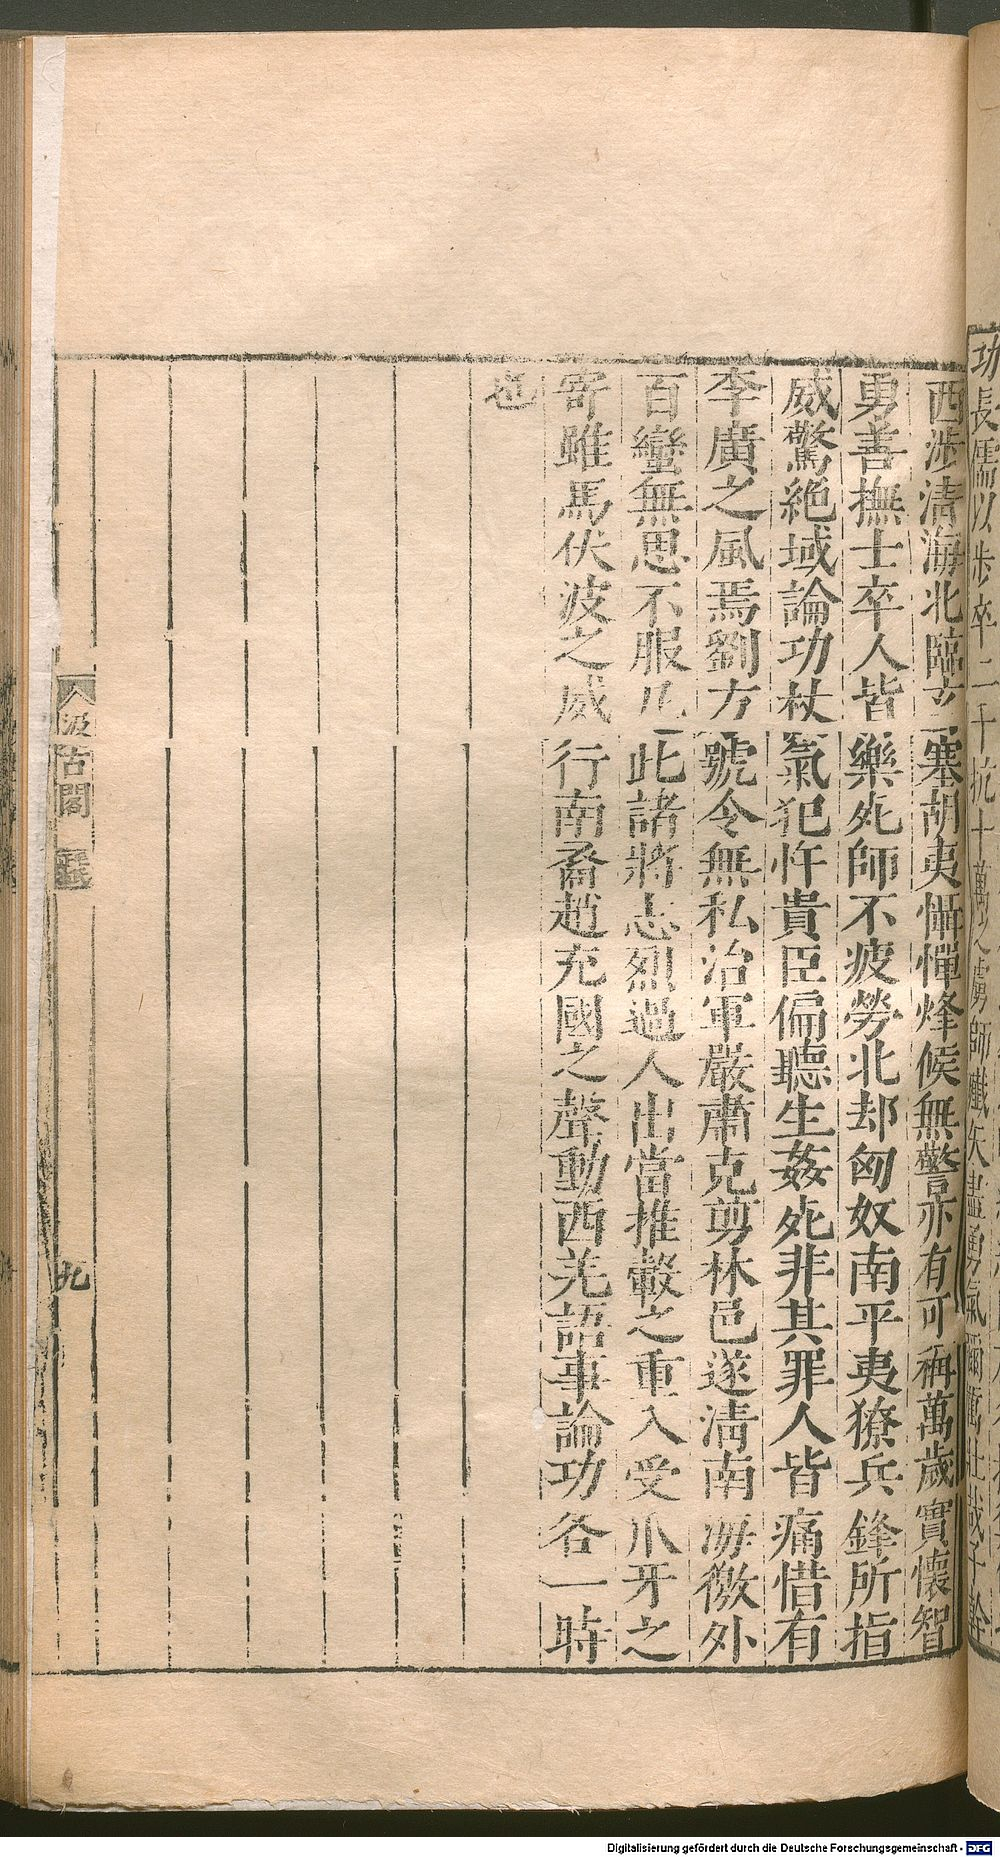 功長儒以步卒二千抗十萬之虜師殲矢盡勇氣彌奮壯哉子幹
西涉淸海北臨玄塞胡夷懾憚烽候無警亦有可稱萬歲實懷智
勇善撫士卒人皆樂死師不疲勞北却匈奴南平夷獠兵鋒所指
威驚絕域論功杖氣犯忤貴臣偏聽生姦死非其罪人皆痛惜有
李廣之風焉劉方號令無私治軍嚴肅克剪林邑遂淸南海徼外
百蠻無思不服凡此諸將志烈過人出當推轂之重入受爪牙之
寄雖馬伏波之威行南裔趙充國之聲動西羌語事論功各一時
也
汲古閣
九
Digitalisierung gefördert durch die Deutsche Forschungsgemeinschaft - DFG